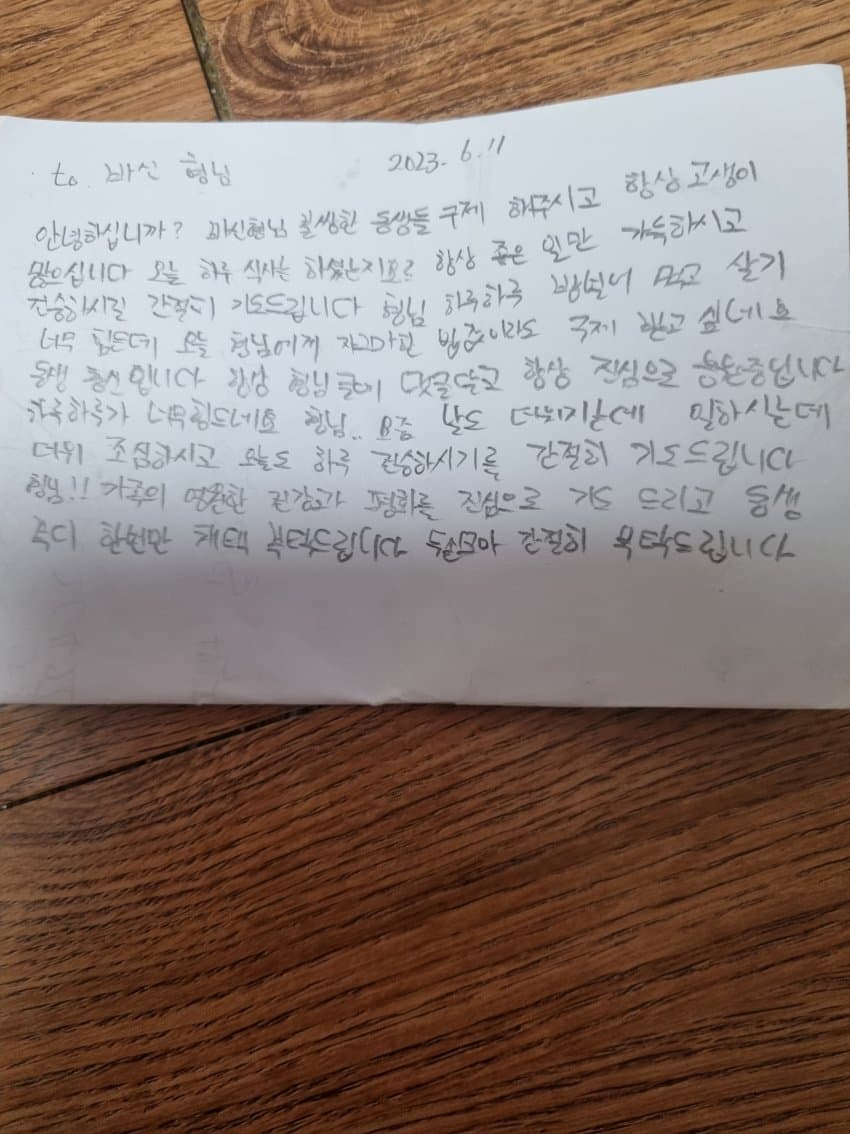 to. 바신 형님 2023. 6. 11
안녕하십니까? 바신형님 불쌍한 동생들 구제 해주시고 항상 고생이
많으십니다 오늘 하루 식사는 하셨는지요? 항상 좋은 일만 가득하시고
건승하시길 간절히 기도드립니다 형님 하루하루 벌어 먹고 살기
너무 힘든데 오늘 형님에게 자그마한 밥줄이라도 구제 받고 싶네요
동생 출신입니다 항상 형님글에 댓글달고 항상 진심으로 응원중입니다
하루하루가 너무힘드네요 형님.. 요즘 날도 더워지는데 일하시는데
더위 조심하시고 오늘도 하루 건승하시기를 간절히 기도드립니다
형님!! 가족의 영원한 건강과 평화를 진심으로 기도 드리고 동생
부디 한번만 채택 부탁드립니다 두손모아 간절히 부탁드립니다